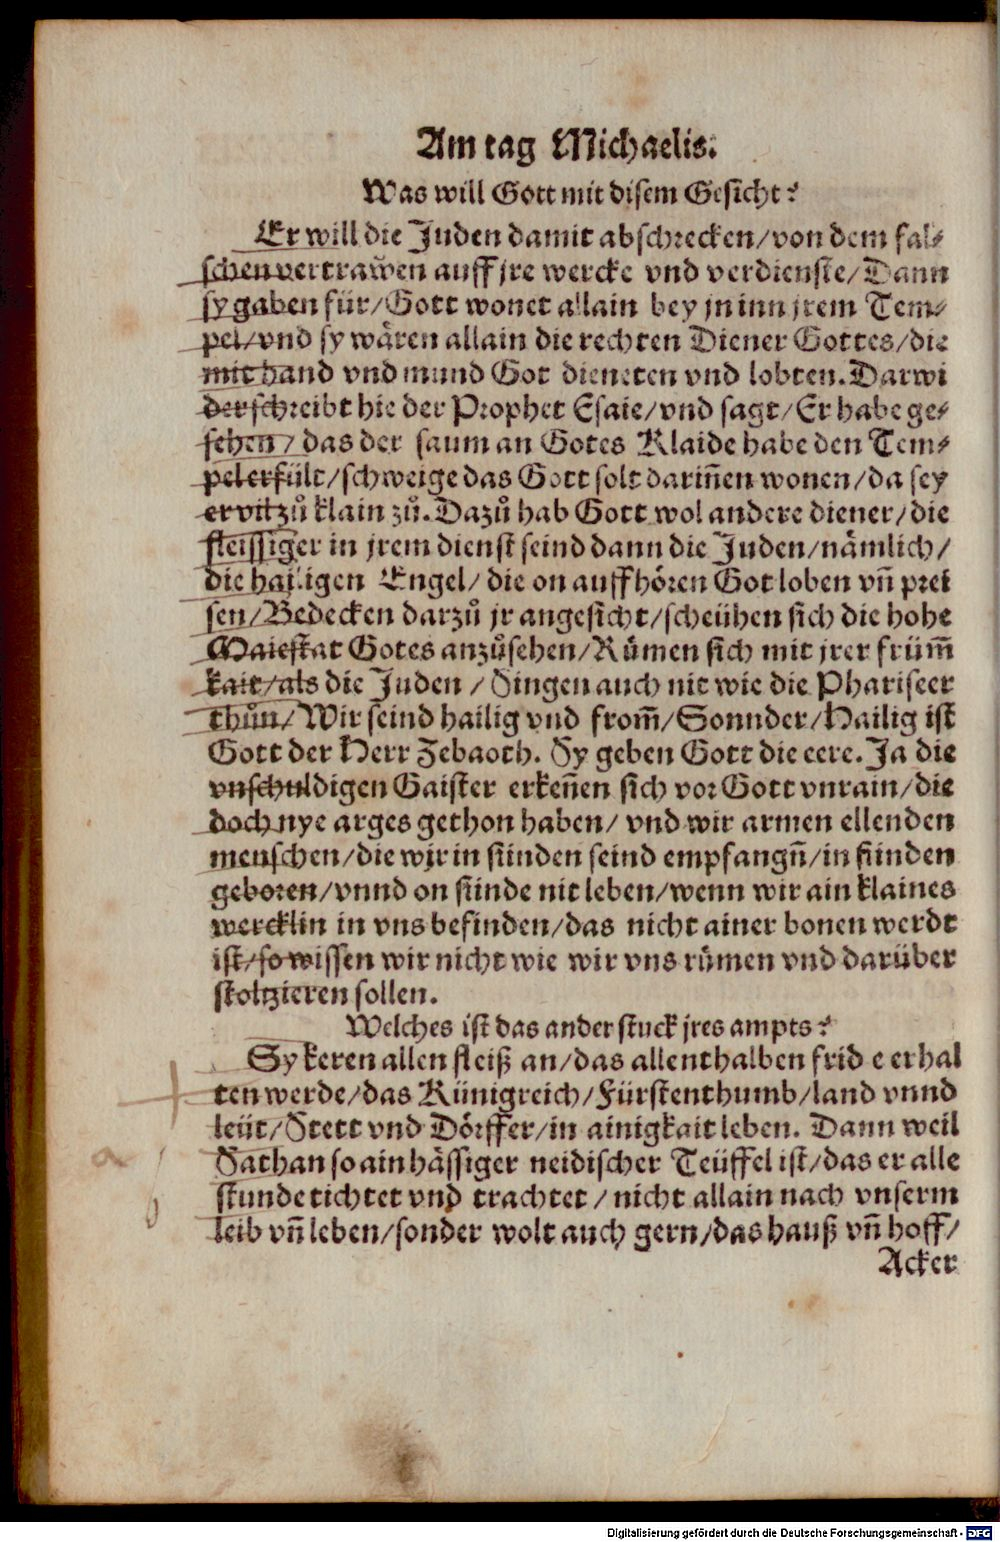 Am tag Michaelis.
Was will Gott mit disem Gesicht?
Er will die Juden damit abschrecken/von dem fal⸗
schen vertrawen auff jre wercke vnd verdienste/Dann
sy gaben für/Gott wonet allain bey jn inn jrem Tem⸗
pel/vnd sy wären allain die rechten Diener Gottes/die
mit hand vnd mund Got dieneten vnd lobten. Darwi
der schreibt hie der Prophet Esaie/vnd sagt/Er habe ge⸗
sehen/das der saum an Gotes Klaide habe den Tem⸗
pel erfült/schweige das Gott solt dariñen wonen/da sey
er vil zů klain zů. Dazů hab Gott wol andere diener/die
fleissiger in jrem dienst seind dann die Juden/nämlich/
die hailigen Engel/die on auffhören Got loben vñ prei
sen/Bedecken darzů jr angesicht/scheühen sich die hohe
Maiestat Gotes anzůsehen/Rümen sich mit jrer früm̃
kait/als die Juden/Singen auch nit wie die Phariseer
thůn/Wir seind hailig vnd from̃/Sonnder/Hailig ist
Gott der Herr Zebaoth. Sy geben Gott die eere. Ja die
vnschuldigen Gaister erkeñen sich vor Gott vnrain/die
doch nye arges gethon haben/vnd wir armen ellenden
menschen/die wir in sünden seind empfangñ/in sünden
geboren/vnnd on sünde nit leben/wenn wir ain klaines
wercklin in vns befinden/das nicht ainer bonen werdt
ist/so wissen wir nicht wie wir vns rümen vnd darüber
stoltzieren sollen.
Welches ist das ander stuck jres ampts?
Sy keren allen fleiß an/das allenthalben frid e erhal
ten werde/das Künigreich/Fürstenthumb/land vnnd
leüt/Stett vnd Dörffer/in ainigkait leben. Dann weil
Sathan so ain hässiger neidischer Teüffel ist/das er alle
stunde tichtet vnd trachtet/nicht allain nach vnserm
leib vñ leben/sonder wolt auch gern/das hauß vñ hoff/
Acker
Digitalisierung gefördert durch die Deutsche Forschungsgemeinschaft - DFG